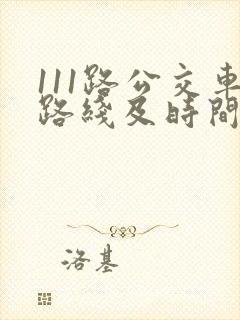 111路公交車
路綫及時間
洛基